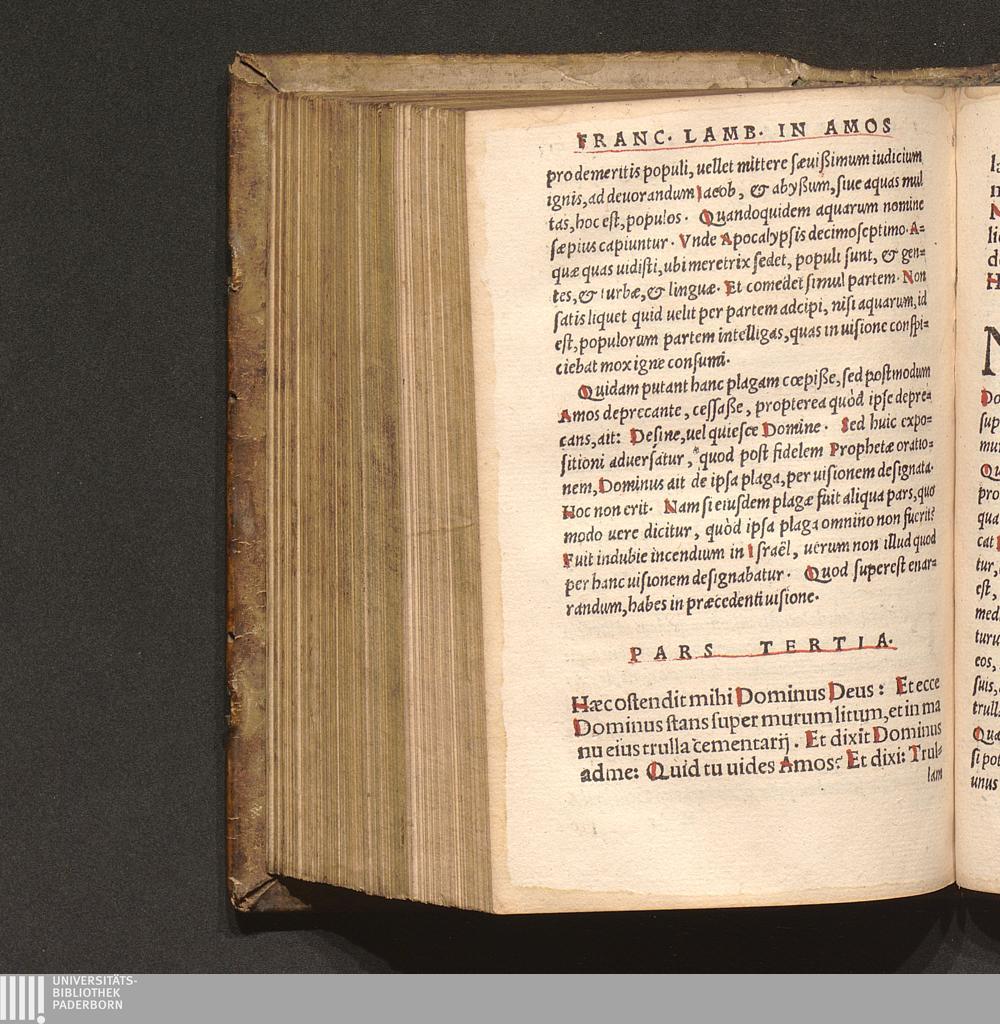 FRANC. LAMB. IN AMOS
pro demeritis populi, uellet mittere sæuißimum iudicium
ignis, ad deuorandum Iacob, & abyßum, siue aquas mul
tas, hoc est, populos. Quandoquidem aquarum nomine
sæpius capiuntur. Vnde Apocalypsis decimoseptimo. A=
quæ quas uidisti, ubi meretrix sedet, populi sunt, & gen=
tes, & turbæ, & linguæ. Et comedet simul partem. Non
satis liquet quid uelit per partem adcipi, nisi aquarum, id
est, populorum partem intelligas, quas in uisione conspi=
ciebat mox igne consumi.
Quidam putant hanc plagam cœpiße, sed postmodum
Amos deprecante, cessaße, propterea quòd ipse depre=
cans, ait: Desine, uel quiesce Domine. Sed huic expo=
sitioni aduersatur, quod post fidelem Prophetæ oratio=
nem, Dominus ait de ipsa plaga, per uisionem designata.
Hoc non erit. Nam si eiusdem plagæ fuit aliqua pars, quo
modo uere dicitur, quòd ipsa plaga omnino non fuerit?
Fuit indubie incendium in Israël, uerum non illud quod
per hanc uisionem designabatur. Quod superest enar=
randum, habes in præcedenti uisione.
PARS TERTIA.
Hæc ostendit mihi Dominus Deus: Et ecce
Dominus stans super murum litum, et in ma
nu eius trulla cementarij. Et dixit Dominus
ad me: Quid tu uides Amos? Et dixi: Trul=
lam
la
N
li
d
H
N
Do
sup
mu
Qu
pro
qua
cat
tur,
est,
med
turu
eos,
suis,
trull
Qua
si pot
unus
UNIVERSITÄTS-
BIBLIOTHEK
PADERBORN